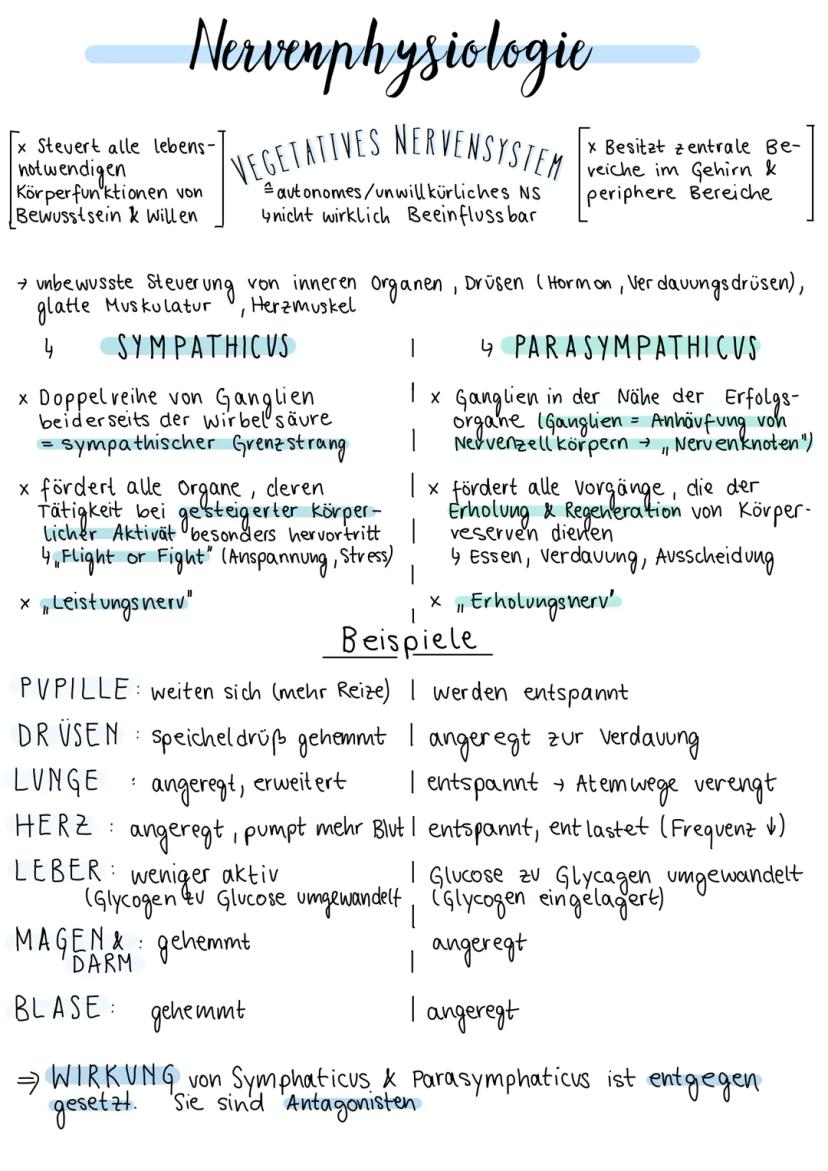 Nervenphysiologie
x Steuert alle lebens-
notwendigen
Körperfunktionen von
Bewusstsein & Willen
VEGETATIVES NERVENSYSTEM
≙ autonomes/unwillkürliches NS
↳ nicht wirklich Beeinflussbar
x Besitzt zentrale Be-
reiche im Gehirn &
periphere Bereiche
→ unbewusste Steuerung von inneren Organen, Drüsen (Hormon, Verdauungsdrüsen),
glatte Muskulatur, Herzmuskel
↳ SYMPATHICUS
x Doppelreihe von Ganglien
beiderseits der Wirbelsäure
= sympathischer Grenzstrang
x fördert alle Organe, deren
Tätigkeit bei gesteigerter Körper-
licher Aktivät besonders hervortritt
↳ „Flight or Fight" (Anspannung, Stress)
x „Leistungsnerv"
↳ PARASYMPATHICUS
x Ganglien in der Nähe der Erfolgs-
organe (Ganglien = Anhäufung von
Nervenzellkörpern → „Nervenknoten")
x fördert alle Vorgänge, die der
Erholung & Regeneration von Körper-
reserven dienen
↳ Essen, Verdauung, Ausscheidung
x „Erholungsnerv'
Beispiele
PUPILLE: weiten sich (mehr Reize) | werden entspannt
DRÜSEN : speicheldrüß gehemmt | angeregt zur Verdauung
LUNGE : angeregt, erweitert | entspannt → Atemwege verengt
HERZ : angeregt, pumpt mehr Blut | entspannt, entlastet (Frequenz ↓)
LEBER: weniger aktiv | Glucose zu Glycagen umgewandelt
(Glycogen zu Glucose umgewandelt | (Glycogen eingelagert)
MAGEN & : gehemmt | angeregt
DARM
BLASE: gehemmt | angeregt
⇒ WIRKUNG von Symphaticus & Parasymphaticus ist entgegen
gesetzt. Sie sind Antagonisten